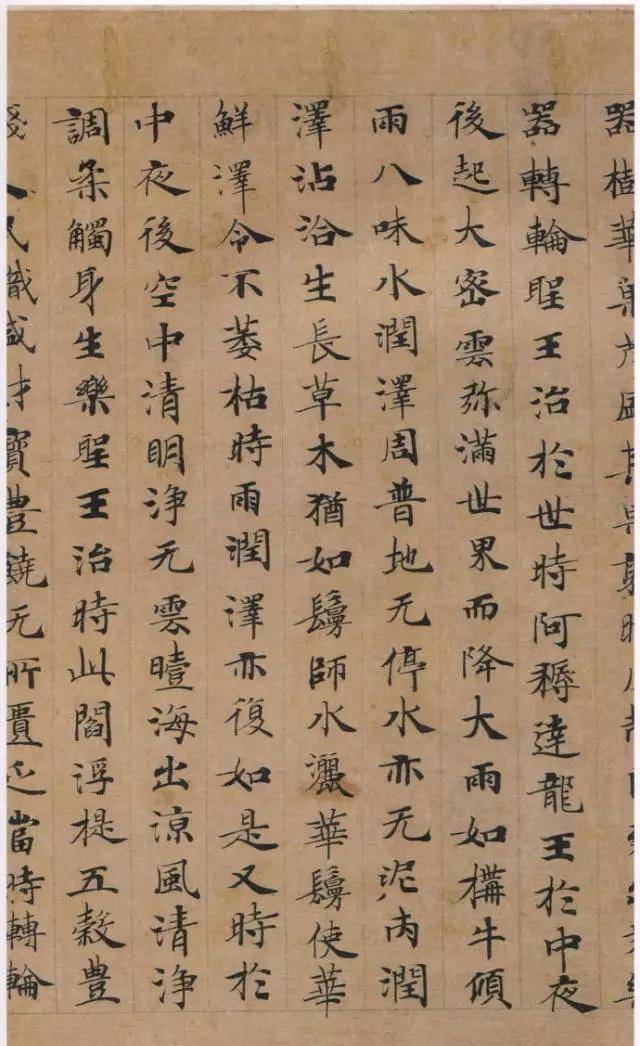 器華菓茂盛其菓熟時
器轉輪聖王治於世時阿耨達龍王於中夜
後起大密雲弥滿世界而降大雨如構牛傾
雨八味水潤澤周普地无停水亦无泥潤
澤沾洽生長草木猶如鬘師水灑華鬘使華
鮮澤令不萎枯時雨潤澤亦復如是又時於
中夜後空中清明浄无雲曀海出涼風清浄
調柔觸身生樂聖王治時此閻浮提五穀豊
賤人民熾盛財寶豊饒无所匱乏當時轉輪